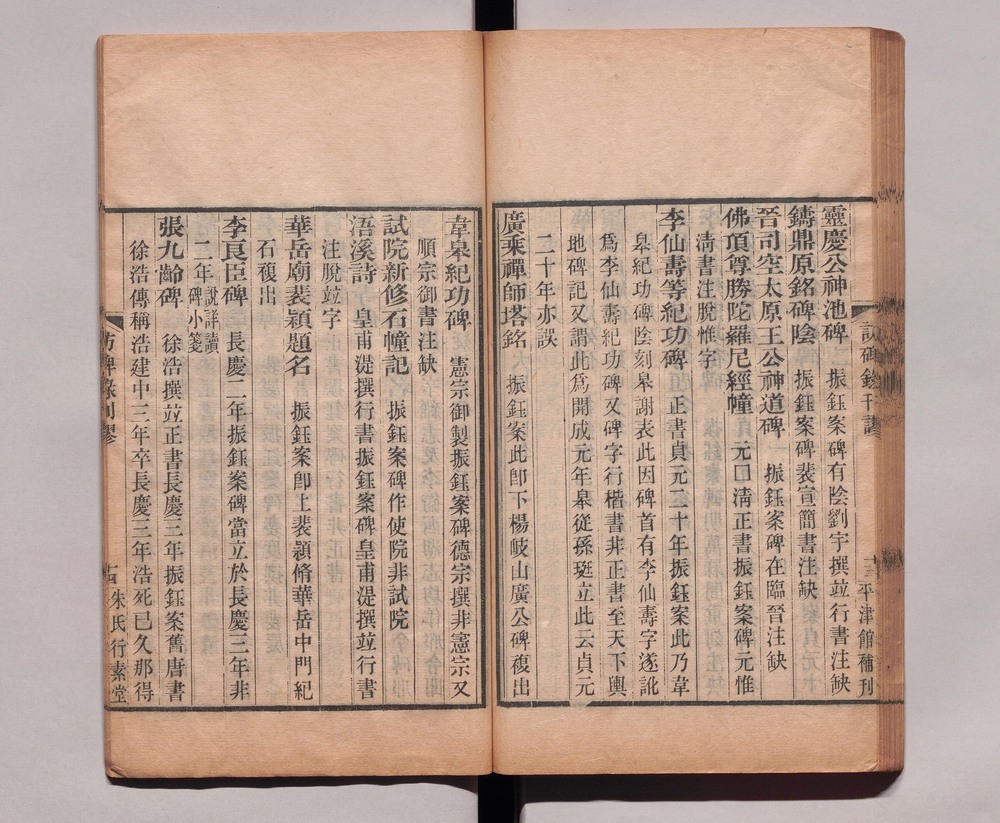 靈慶公神池碑 振鈺案碑有陰劉宇撰竝行書注缺
鑄鼎原銘碑陰 振鈺案碑裴宣簡書注缺
晉司空太原王公神道碑 振鈺案碑在臨晉注缺
佛頂尊勝陀羅尼經幢 元口淸正書振鈺案碑元惟
淸書注脫惟字
李仙壽等紀功碑 正書貞元二十年振鈺案此乃韋
皋紀功碑陰刻皋謝表此因碑首有李仙壽字遂訛
爲李仙壽紀功碑又碑字行楷書非正書至天下輿
地碑記又謂此爲開成元年皋從孫珽立此云貞元
二十年亦誤
廣乘禪師塔銘 振鈺案此卽下楊岐山廣公碑複出
韋皋紀功碑 憲宗御製振鈺案碑德宗撰非憲宗又
順宗御書注缺
試院新修石幢記 振鈺案碑作使院非試院
浯溪詩 皇甫湜撰行書振鈺案碑皇甫湜撰竝行書
注脫竝字
華岳廟裴穎題名 振鈺案卽上裴潁脩華岳中門紀
石複出
李良臣碑 長慶二年振鈺案碑當立於長慶三年非
二年說詳讀碑小箋
張九齡碑 徐浩撰竝正書長慶三年振鈺案舊唐書
徐浩傳稱浩建中三年卒長慶三年浩死已久那得
訪碑錄刊謬
十三
平津館補刊
十四
朱氏行素堂